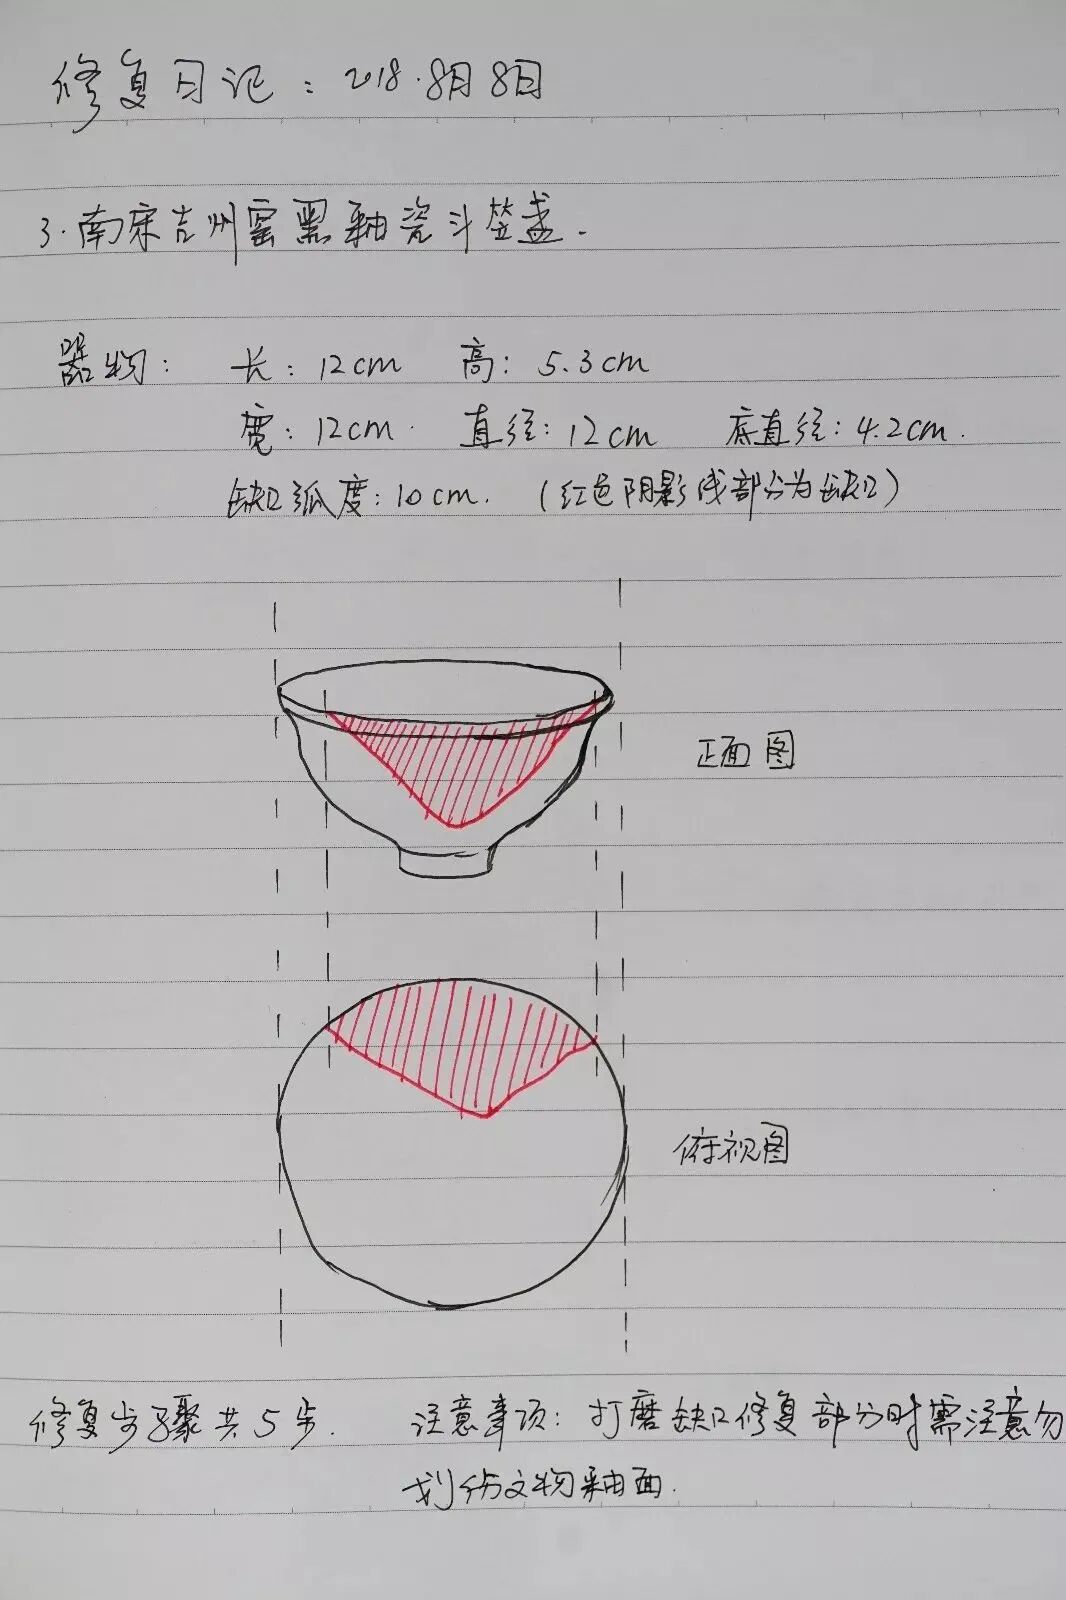 修复日记：2018.8月8日
3.南宋吉州窑黑釉瓷斗笠盏.
器物： 长：12cm 高：5.3cm
宽：12cm. 直径：12cm 底直径：4.2cm.
缺口弧度：10cm. （红色阴影线部分为缺口）
正面图
俯视图
修复步骤共5步. 注意事项：打磨缺口修复部分时需注意勿
划伤文物釉面.